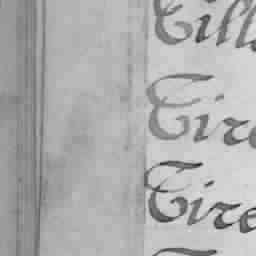 Till
Tire
Tire